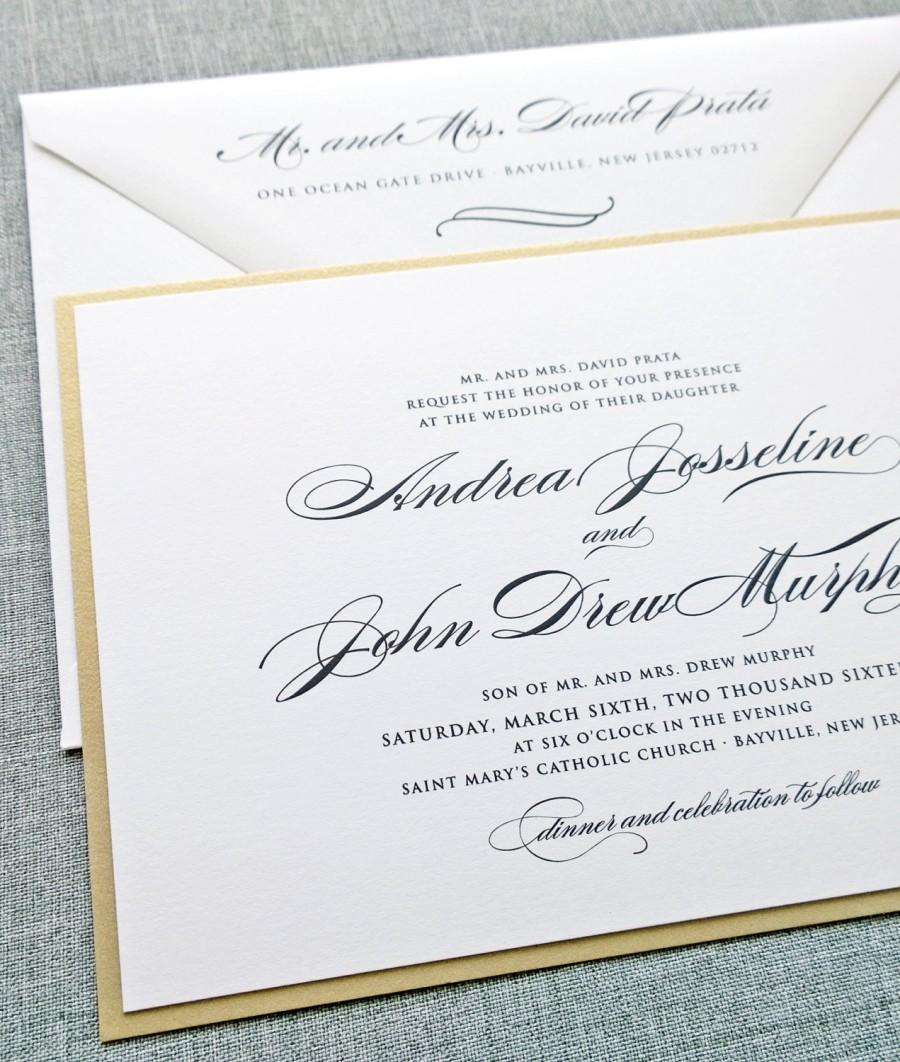 Mr. and Mrs. David Prata
ONE OCEAN GATE DRIVE · BAYVILLE, NEW JERSEY 02712
MR. AND MRS. DAVID PRATA
REQUEST THE HONOR OF YOUR PRESENCE
AT THE WEDDING OF THEIR DAUGHTER
Andrea Josseline
and
John Drew Murph
SON OF MR. AND MRS. DREW MURPHY
SATURDAY, MARCH SIXTH, TWO THOUSAND SIXTE
AT SIX O'CLOCK IN THE EVENING
SAINT MARY'S CATHOLIC CHURCH · BAYVILLE, NEW JER
dinner and celebration to follow